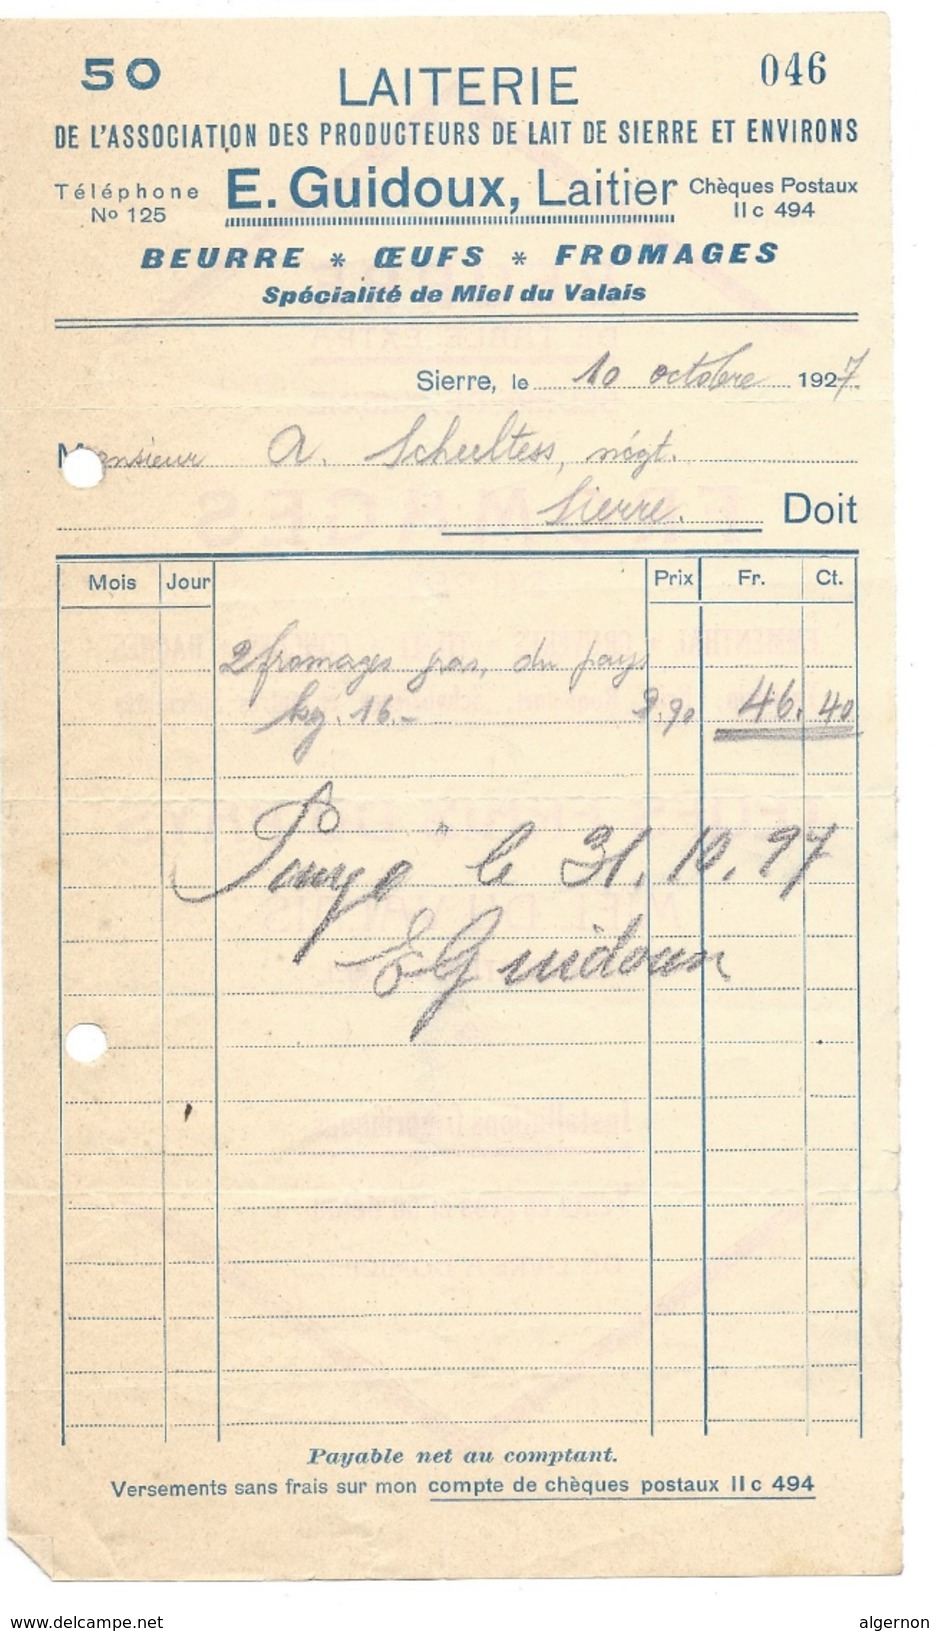 50 LAITERIE 046
DE L'ASSOCIATION DES PRODUCTEURS DE LAIT DE SIERRE ET ENVIRONS
Téléphone No 125 E. Guidoux, Laitier Chèques Postaux IIc 494
BEURRE * ŒUFS * FROMAGES
Spécialité de Miel du Valais
Sierre, le 10 octobre 1927.
Monsieur A. Schultess, négt.
Sierre. Doit
Mois Jour Prix Fr. Ct.
2 fromages gras, du pays
kg. 16.- 2.90 46.40
Payé le 31.10.27
E Guidoux
Payable net au comptant.
Versements sans frais sur mon compte de chèques postaux IIc 494
www.delcampe.net algernon